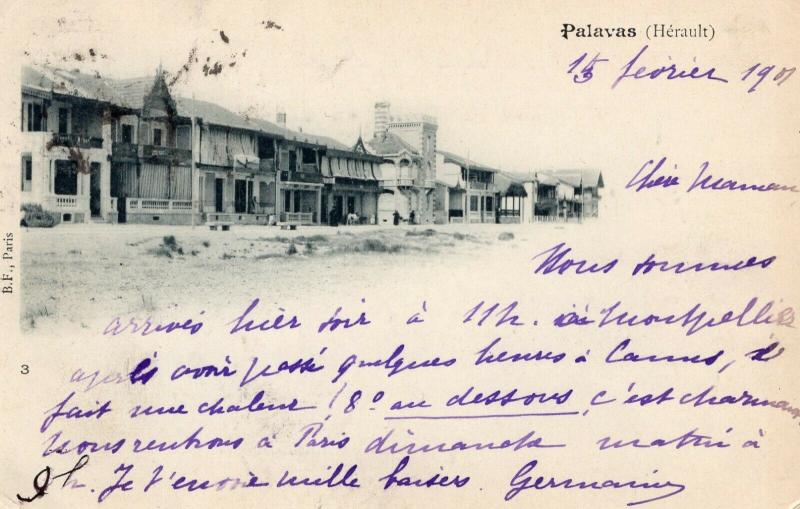 Palavas (Hérault)
15 février 1901
Chère Maman
Nous sommes
arrivés hier soir à 11h. à Montpellier
après avoir passé quelques heures à Cannes, il
fait une chaleur ! 8° au dessous, c'est charmant
Nous rentrons à Paris dimanche matin à
9h. Je t'envoie mille baisers. Germaine
B.F., Paris
3